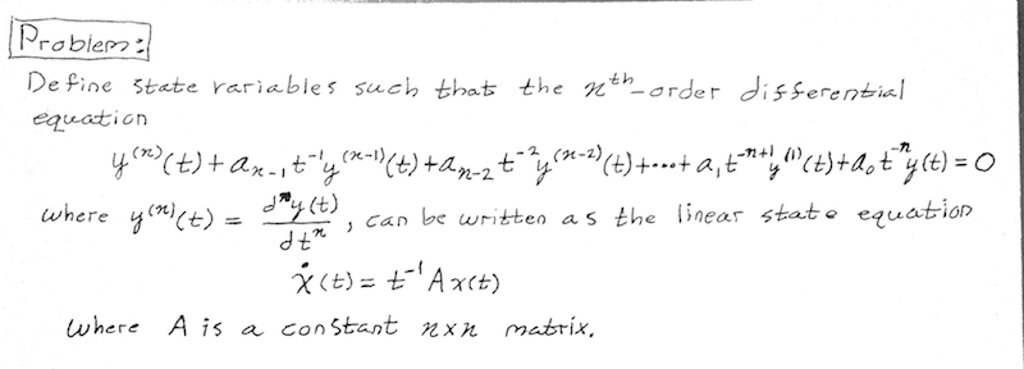 Problem:
Define state variables such that the nth-order differential
equation
y⁽ⁿ⁾(t) + aₙ₋₁ t⁻¹ y⁽ⁿ⁻¹⁾(t) + aₙ₋₂ t⁻² y⁽ⁿ⁻²⁾(t) + ... + a₁ t⁻ⁿ⁺¹ y⁽¹⁾(t) + a₀ t⁻ⁿ y(t) = 0
where y⁽ⁿ⁾(t) = dⁿy(t)/dtⁿ, can be written as the linear state equation
ẋ(t) = t⁻¹ A x(t)
where A is a constant n×n matrix.